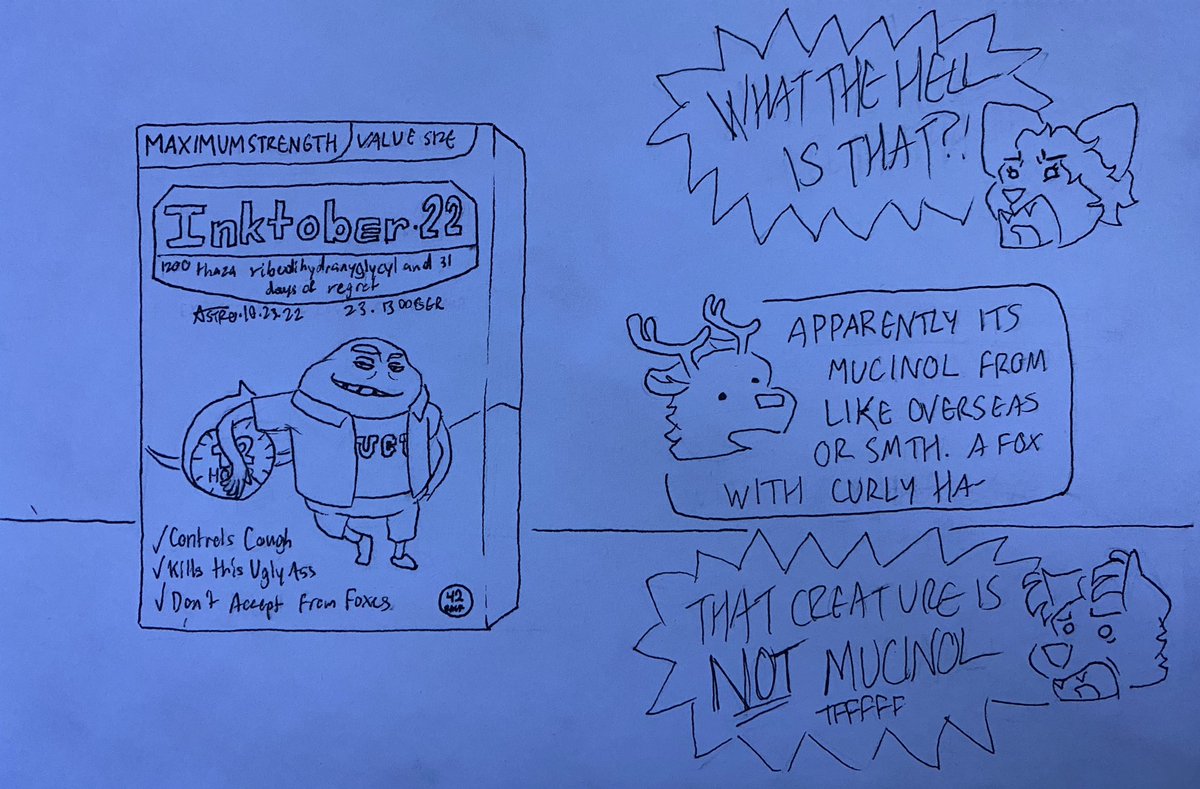 MAXIMUM STRENGTH
VALUE SIZE
Inktober.22
1200 and 31
days of regret
ASTRO.10.23.22
23. BOOGER
12
HO R
UCI
✓Controls Cough
✓Kills this Ugly Ass
✓Don't Accept From Foxes
42
WHAT THE HELL
IS THAT?!
APPARENTLY ITS
MUCINOL FROM
LIKE OVERSEAS
OR SMTH. A FOX
WITH CURLY HA-
THAT CREATURE IS
NOT MUCINOL
TFFFFFF